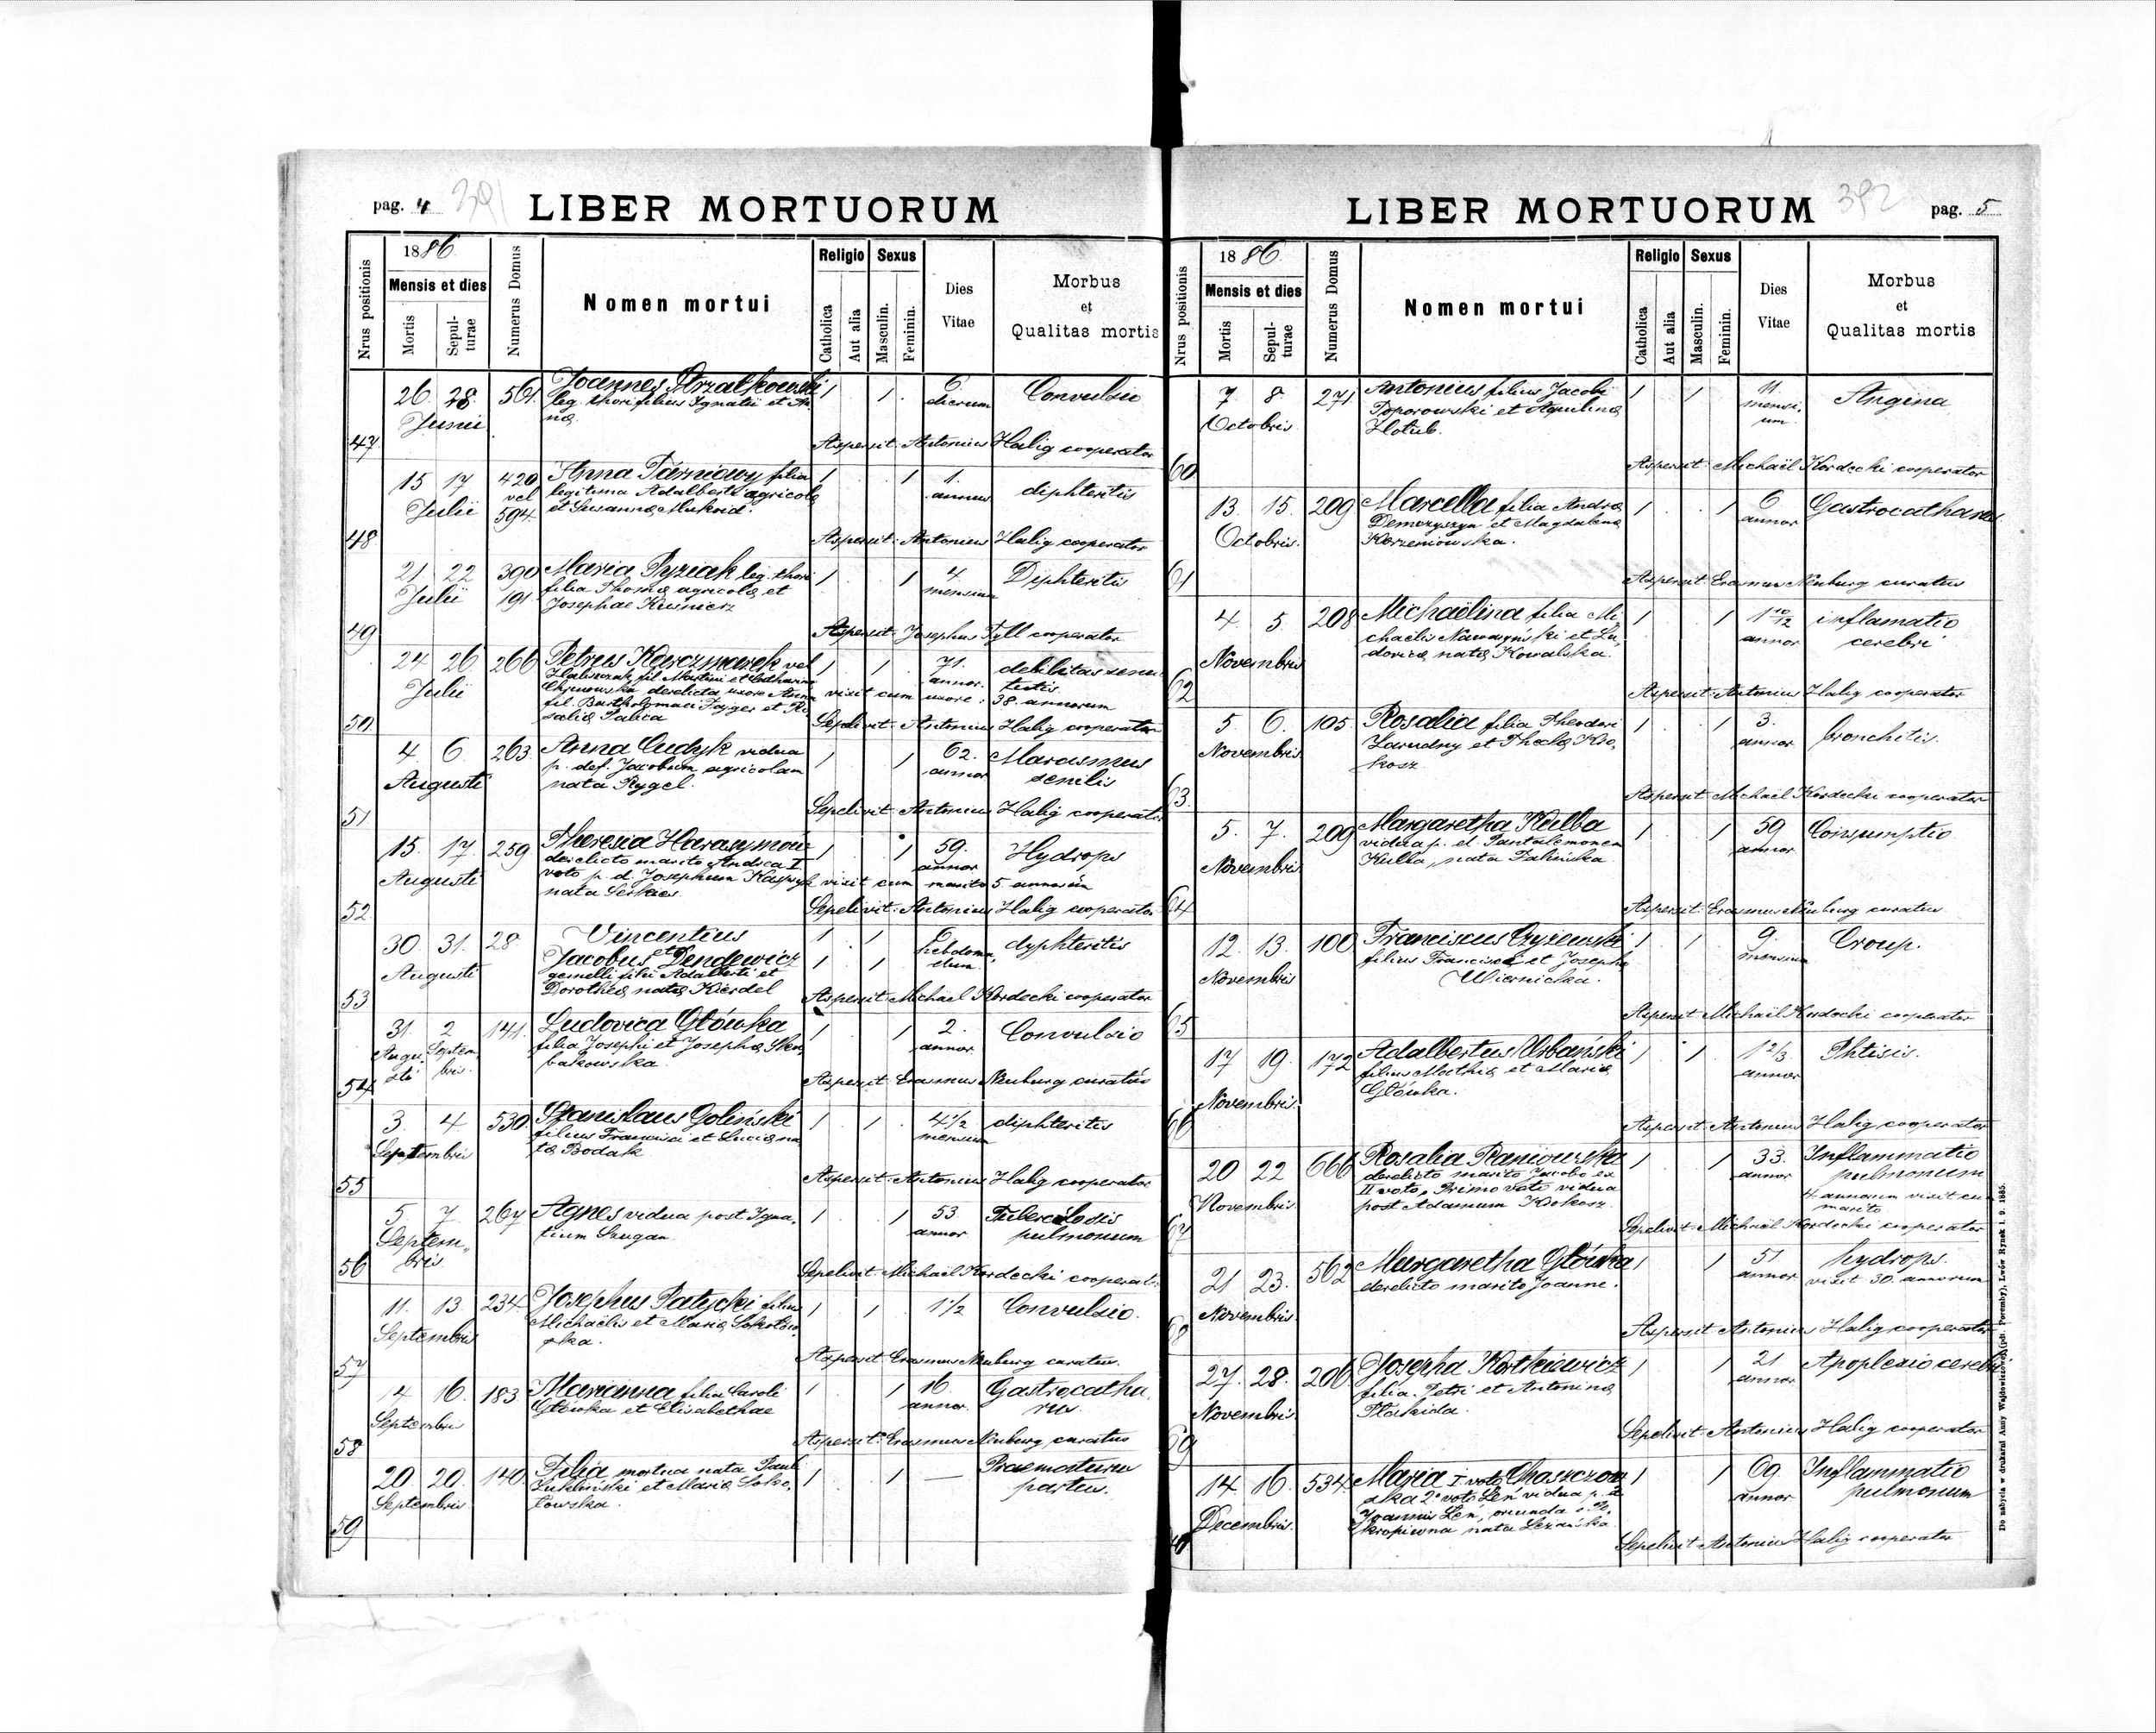 pag. 4 391 LIBER MORTUORUM
Nrus positionis
1886
Mensis et dies
Mortis
Sepulturae
Numerus Domus
Nomen mortui
Religio
Catholica
Aut alia
Sexus
Masculin.
Feminin.
Dies
Vitae
Morbus
et
Qualitas mortis
47 26 28 Junii 561
leg. thori filius Ignatii et An
na
1 1 6 dierum Convulsio
Aspersit: Antonius Halig cooperator
48 15 17 Julii 420 vel 594
Anna Tarniowy filia
legitima Adalberti agricolæ
et Susannæ
1 1 1. annus diphteritis
Aspersit: Antonius Halig cooperator
49 21 22 Julii 390 191
Maria Pyziak leg. thori
filia Thomæ agricolæ et
Josephae Kusnierz
1 1 4 mensium Diphteritis
Aspersit: Josephus Tyll cooperator
50 24 26 Julii 266
Petrus Karczmarek vel
fil. Martini et Catharina
derelicta uxore Anna
fil. Bartholomaei et Ro
salia
1 1 71. annor. debilitas senec
tutis
vixit cum uxore: 38. annorum
Sepelivit: Antonius Halig cooperator
51 4 6 Augusti 263
Anna Cudzyk vidua
p. def. Jacobum agricolam
nata Rygel.
1 1 62. annor Marasmus
senilis
Sepelivit: Antonius Halig cooperator
52 15. 17. Augusti 259
Theresia Harasymow
derelicto marito Andrea I
voto p. d. Josephum Kasprzyk
nata
1 1 59. annor Hydrops
vixit cum marito 5 annorum
Sepelivit: Antonius Halig cooperator
53 30 31. Augusti 28
Vincentius
et
Jacobus Dendewicz
gemelli filii Adalberti et
Dorotheæ natæ Kierdel
1 1
1 1
6 hebdoma
dum dyphteritis
Aspersit: Michael Kordecki cooperator
54 31. Augu
sti 2 Septem
bris 141
Ludovica Główka
filia Josephi et Josephæ Skro
bakowska
1 1 2. annor Convulsio
Aspersit: Erasmus Neuburg curatus
55 3. 4 Septembris 530
Stanislaus Goliński
filius Francisci et Luciæ na
tæ Bodak
1 1 4 1/2 mensium diphteritis
Aspersit: Antonius Halig cooperator
56 5 7 Septem
bris 267
Agnes vidua post Igna
tium Szugan
1 1 53 annor Tuberculosis
pulmonum
Sepelivit: Michaël Kordecki cooperat.
57 11. 13. Septembris 234
Josephus Patycki filius
Michaëlis et Mariæ Sokołow
ska.
1 1 1 1/2 Convulsio.
Aspersit: Erasmus Neuburg curatus.
58 14 16. Septembris 183
Marianna filia Caroli
Główka et Elisabethae
1 1 16. annor. Gastrocatha
rus.
Aspersit: Erasmus Neuburg curatus
59 20 20. Septembris 140
Filia mortua nata Pauli
et Mariæ Soko
łowska.
1 1 — Praematurus
partus.
LIBER MORTUORUM 392 pag. 5
Nrus positionis
1886
Mensis et dies
Mortis
Sepulturae
Numerus Domus
Nomen mortui
Religio
Catholica
Aut alia
Sexus
Masculin.
Feminin.
Dies
Vitae
Morbus
et
Qualitas mortis
60 7 8 Octobris 271
Antonius filius Jacobi
Toporowski et Aquilinæ
Hołub.
1 1 11 mensi
um. Angina
Aspersit: Michaël Kordecki cooperator
61 13. 15. Octobris. 209
Marcella filia Andreæ
Demczyszyn et Magdalenæ
Korzeniowska.
1 1 6 annor Gastrocatharus
Aspersit: Erasmus Neuburg curatus
62 4 5 Novembris 208
Michaëlina filia Mi
chaelis Nawarynski et Lu
dovicæ natæ Kowalska.
1 1 1 10/12 annor inflamatio
cerebri
Aspersit: Antonius Halig cooperator
63 5. 6. Novembris 105
Rosalia filia Theodori
Zarudny et Theclæ Kro
kosz
1 1 3. annor bronchitis.
Aspersit: Michael Kordecki cooperator
64 5. 7. Novembris 209
Margaretha Kulba
vidua p. d. Pantalemonem
Kulba, nata Palińska
1 1 59 annor Consumptio
Aspersit: Erasmus Neuburg curatus
65 12. 13. Novembris 100
Franciscus Czyżewski
filius Francisci et Josephæ
Wiernicka.
1 1 9. mensium Croup.
Aspersit: Michaël Kordecki cooperator
66 17 19. Novembris. 172
Adalbertus Urbański
filius Mathiæ et Mariæ
Główka.
1 1 1 2/3. annor Phtisis.
Aspersit: Antonius Halig cooperator
67 20 22 Novembris 666
Rosalia Raniowska
derelicto marito Jacobo ex
II voto, Primo voto vidua
post Adamum Krokosz.
1 1 33. annor Inflammatio
pulmonum
4 annorum vixit cum
marito
Sepelivit: Michaël Kordecki cooperator
68 21 23. Novembris 562
Margaretha Główka
derelicto marito Joanne.
1 1 51 annor hydrops.
vixit 30. annorum
Aspersit: Antonius Halig cooperator
69 27. 28. Novembris 206
Josepha Kotkiewicz
filia Petri et Antoninæ
Płaskida.
1 1 21 annor Apoplexio cerebri
Sepelivit: Antonius Halig cooperator
14 16. Decembris. 534
Maria I voto Chaszczow
ska 2º voto Leń vidua p. d.
Joannis Leń, oriunda e Po
kropiwna nata
1 1 69 annor Inflammatio
pulmonum
Sepelivit: Antonius Halig cooperator
Do nabycia w drukarni Anny Wajdowiczowej (pdr. Poremby), Lwów Rynek l. 9. 1885.